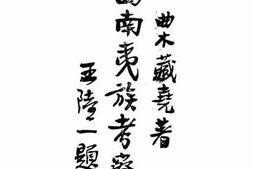 曲木藏堯著
南夷族考察
王陸一題